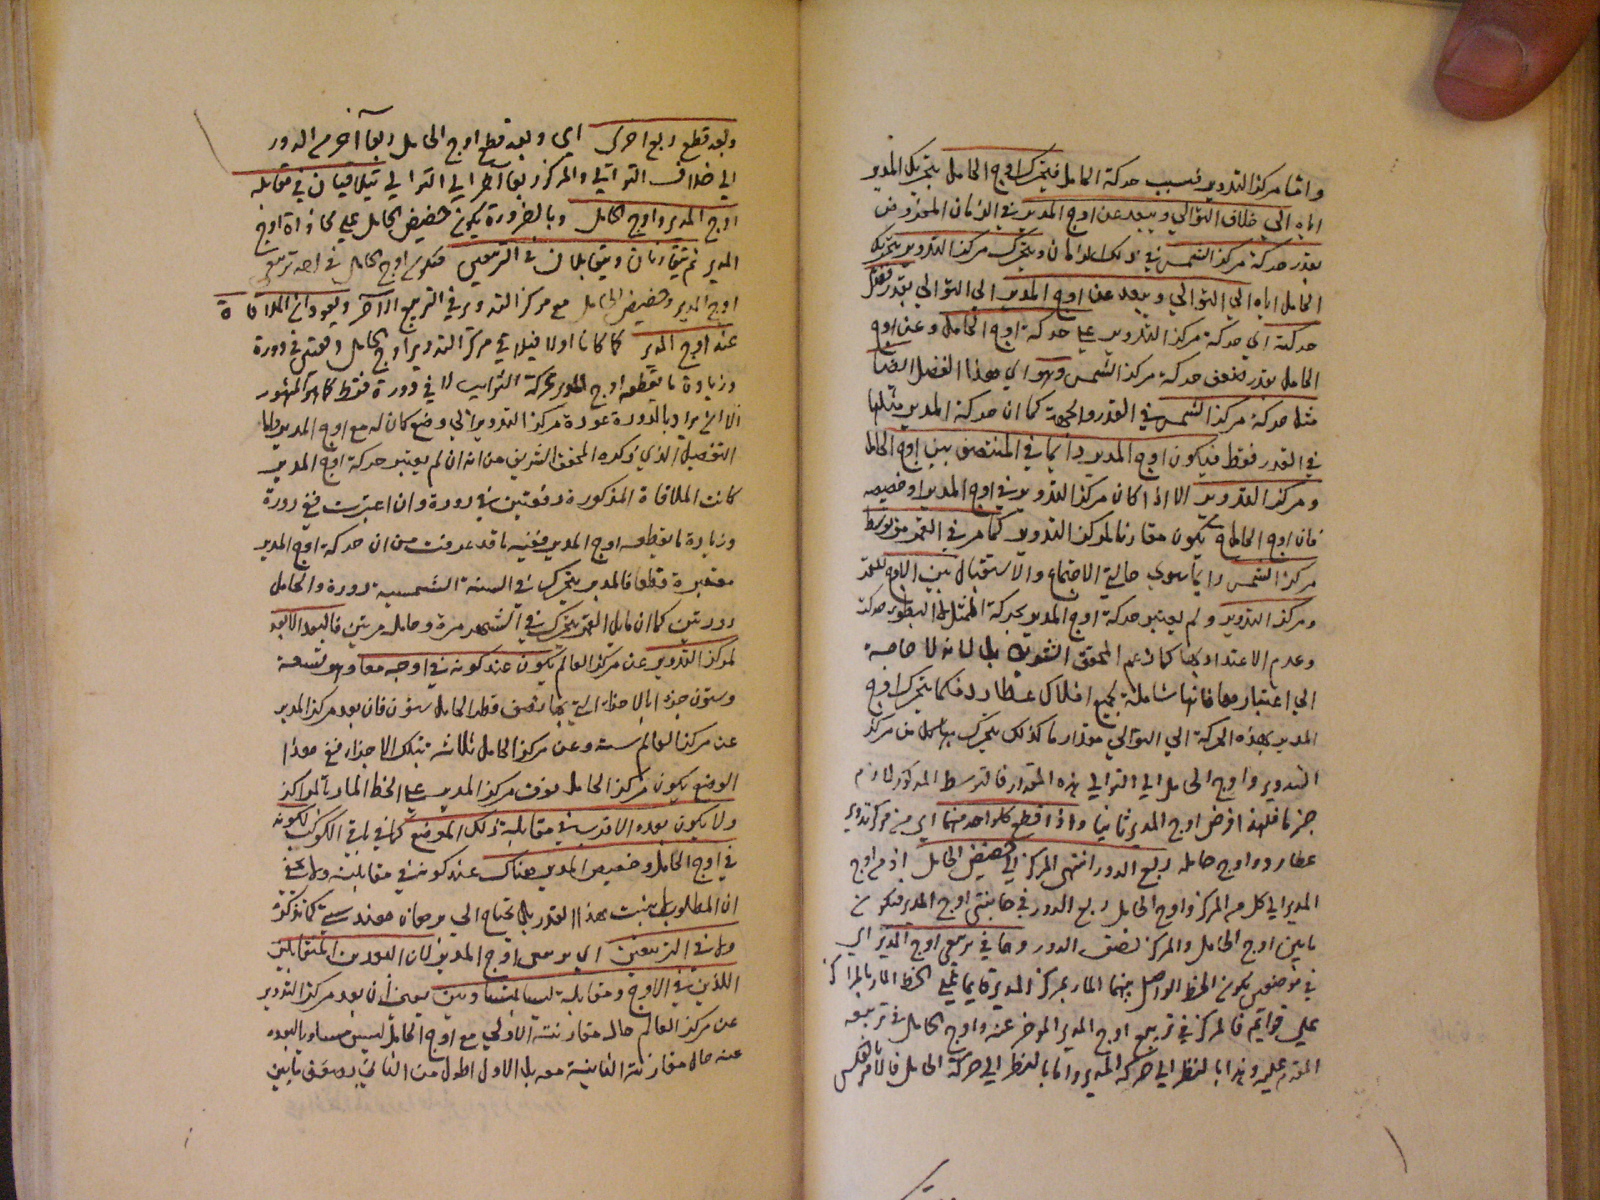 واما مركز التدوير فبسبب حركة الحامل فيتحرك اوج الحامل بتحريك المدير
اياه الى خلاف التوالي ويبعد عن اوج المدير في الزمان المفروض
بقدر حركة مركز الشمس في ذلك الزمان ويتحرك مركز التدوير بتحريك
الحامل اياه الى التوالي ويبعد عن اوج المدير الى التوالي بقدر فضل
حركته اي حركة مركز التدوير على حركة اوج الحامل وعن اوج
الحامل بقدر ضعف حركة مركز الشمس وهو اي هذا الفضل ايضا
مثل حركة مركز الشمس في القدر والجهة كما ان حركة المدير مثلها
في القدر فقط فيكون اوج المدير دايما في المنتصف بين اوج الحامل
ومركز التدوير الا اذا كان مركز التدوير في اوج المدير او حضيضه
فان اوج الحامل يكون مقارنا لمركز التدوير كما مر في القمر من توسط
مركز الشمس دايما سوى حالتي الاجتماع والاستقبال بين الاوج للقمر
ومركز التدوير ولم يعتبر حركة اوج المدير بحركة الممثل لبطوء حركته
وعدم الاعتداد بها كما زعم المحقق الشريف بل لانه لا حاجة
الى اعتبارها فانها شاملة لجميع افلاك عطارد فكما يتحرك اوج
المدير بهذه الحركة الى التوالي مقدارما كذلك يتحرك بها كل من مركز
التدوير واوج الحامل الى التوالي بهذه المقدار فالتوسط المذكور لازم
جزما فلهذا فرض اوج المدير ثابتا واذا قطع كل واحد منهما اي من مركز تدوير
عطارد واوج حامله ربع الدور انتهى المركز الى حضيض الحامل اذ من اوج
المدير الى كل من المركز واوج الحامل ربع الدور في جانبتى اوج المدير فيكون
ما بين اوج الحامل والمركز نصف الدور وهما في تربيعي اوج المدير اي
في موضعين يكون الخط الواصل بينهما المار بمركز المدير قايما على الخط المار بالمراكز
على قوايم فالمركز في تربيع اوج المدير المؤخر عنه واوج الحامل في تربيعه
المقدم عليه وهذا بالنظر الى حركة المدير واما بالنظر الى حركة الحامل فالامر بالعكس
وبعد قطع ربع اخرى اي وبعد قطع اوج الحامل ربعا آخر من الدور
الى خلاف التوالي والمركز ربعا آخر الى التوالي يتلاقيان في مقابلة
اوج المدير واوج الحامل وبالضرورة يكون حضيض الحامل على محاذاة اوج
المدير ثم يتفارقان ويتقابلان في التربيعين فيكون اوج الحامل في احد تربيعي
اوج المدير وحضيض الحامل مع مركز التدوير في التربيع الآخر ويعودان الى الملاقاة
عند اوج المدير كما كانا اولا فيلاقي مركز التدوير اوج الحامل دفعتين في دورة
وزيادة ما يقطعه اوج المدير بحركة الثوابت لا في دورة فقط كما هو المشهور
الا ان يراد بالدورة عودة مركز التدوير الى وضع كان له مع اوج المدير واما
التفصيل الذي ذكره المحقق الشريف من انه ان لم يعتبر حركة اوج المدير
كانت الملاقاة المذكورة دفعتين في دورة وان اعتبرت ففي دورة
وزيادة ما يقطعه اوج المدير ففيه ما قد عرفت من ان حركة اوج المدير
معتبرة قطعا فالمدير يتحرك في السنة الشمسية دورة والحامل
دورتين كما ان مايل القمر يتحرك في الشهر مرة وحامله مرتين فالبعد الابعد
لمركز التدوير عن مركز العالم يكون عند كونه في اوجيه معا وهو تسعة
وستون جزءا بالاجزاء التي بها نصف قطر الحامل ستون فان بعد مركز المدير
عن مركز العالم ستة وعن مركز الحامل ثلاثة بتلك الاجزاء ففي هذا
الوضع يكون مركز الحامل فوق مركز المدير على الخط المار بالمراكز
ولا يكون بعده الاقرب في مقابلة ذلك الموضع كما في باقي الكواكب لكونه
في اوج الحامل وحضيض المدير هناك عند كونه في مقابلته ولا يخفى
ان المطلوب لا يثبت بهذا القدر بل يحتاج الى برهان هندسي كما تذكره
ولا في التربيعين اي تربيعي اوج المدير لان البعدين المتقابلين
اللذين في الاوج ومقابله ليسا بمتساويين يعني ان بعد مركز التدوير
عن مركز العالم حال مقارنته الاولى مع اوج الحامل ليس مساويا لبعده
عنه حال مقارنته الثانية معه بل الاول اطول من الثاني بضعف ما بين